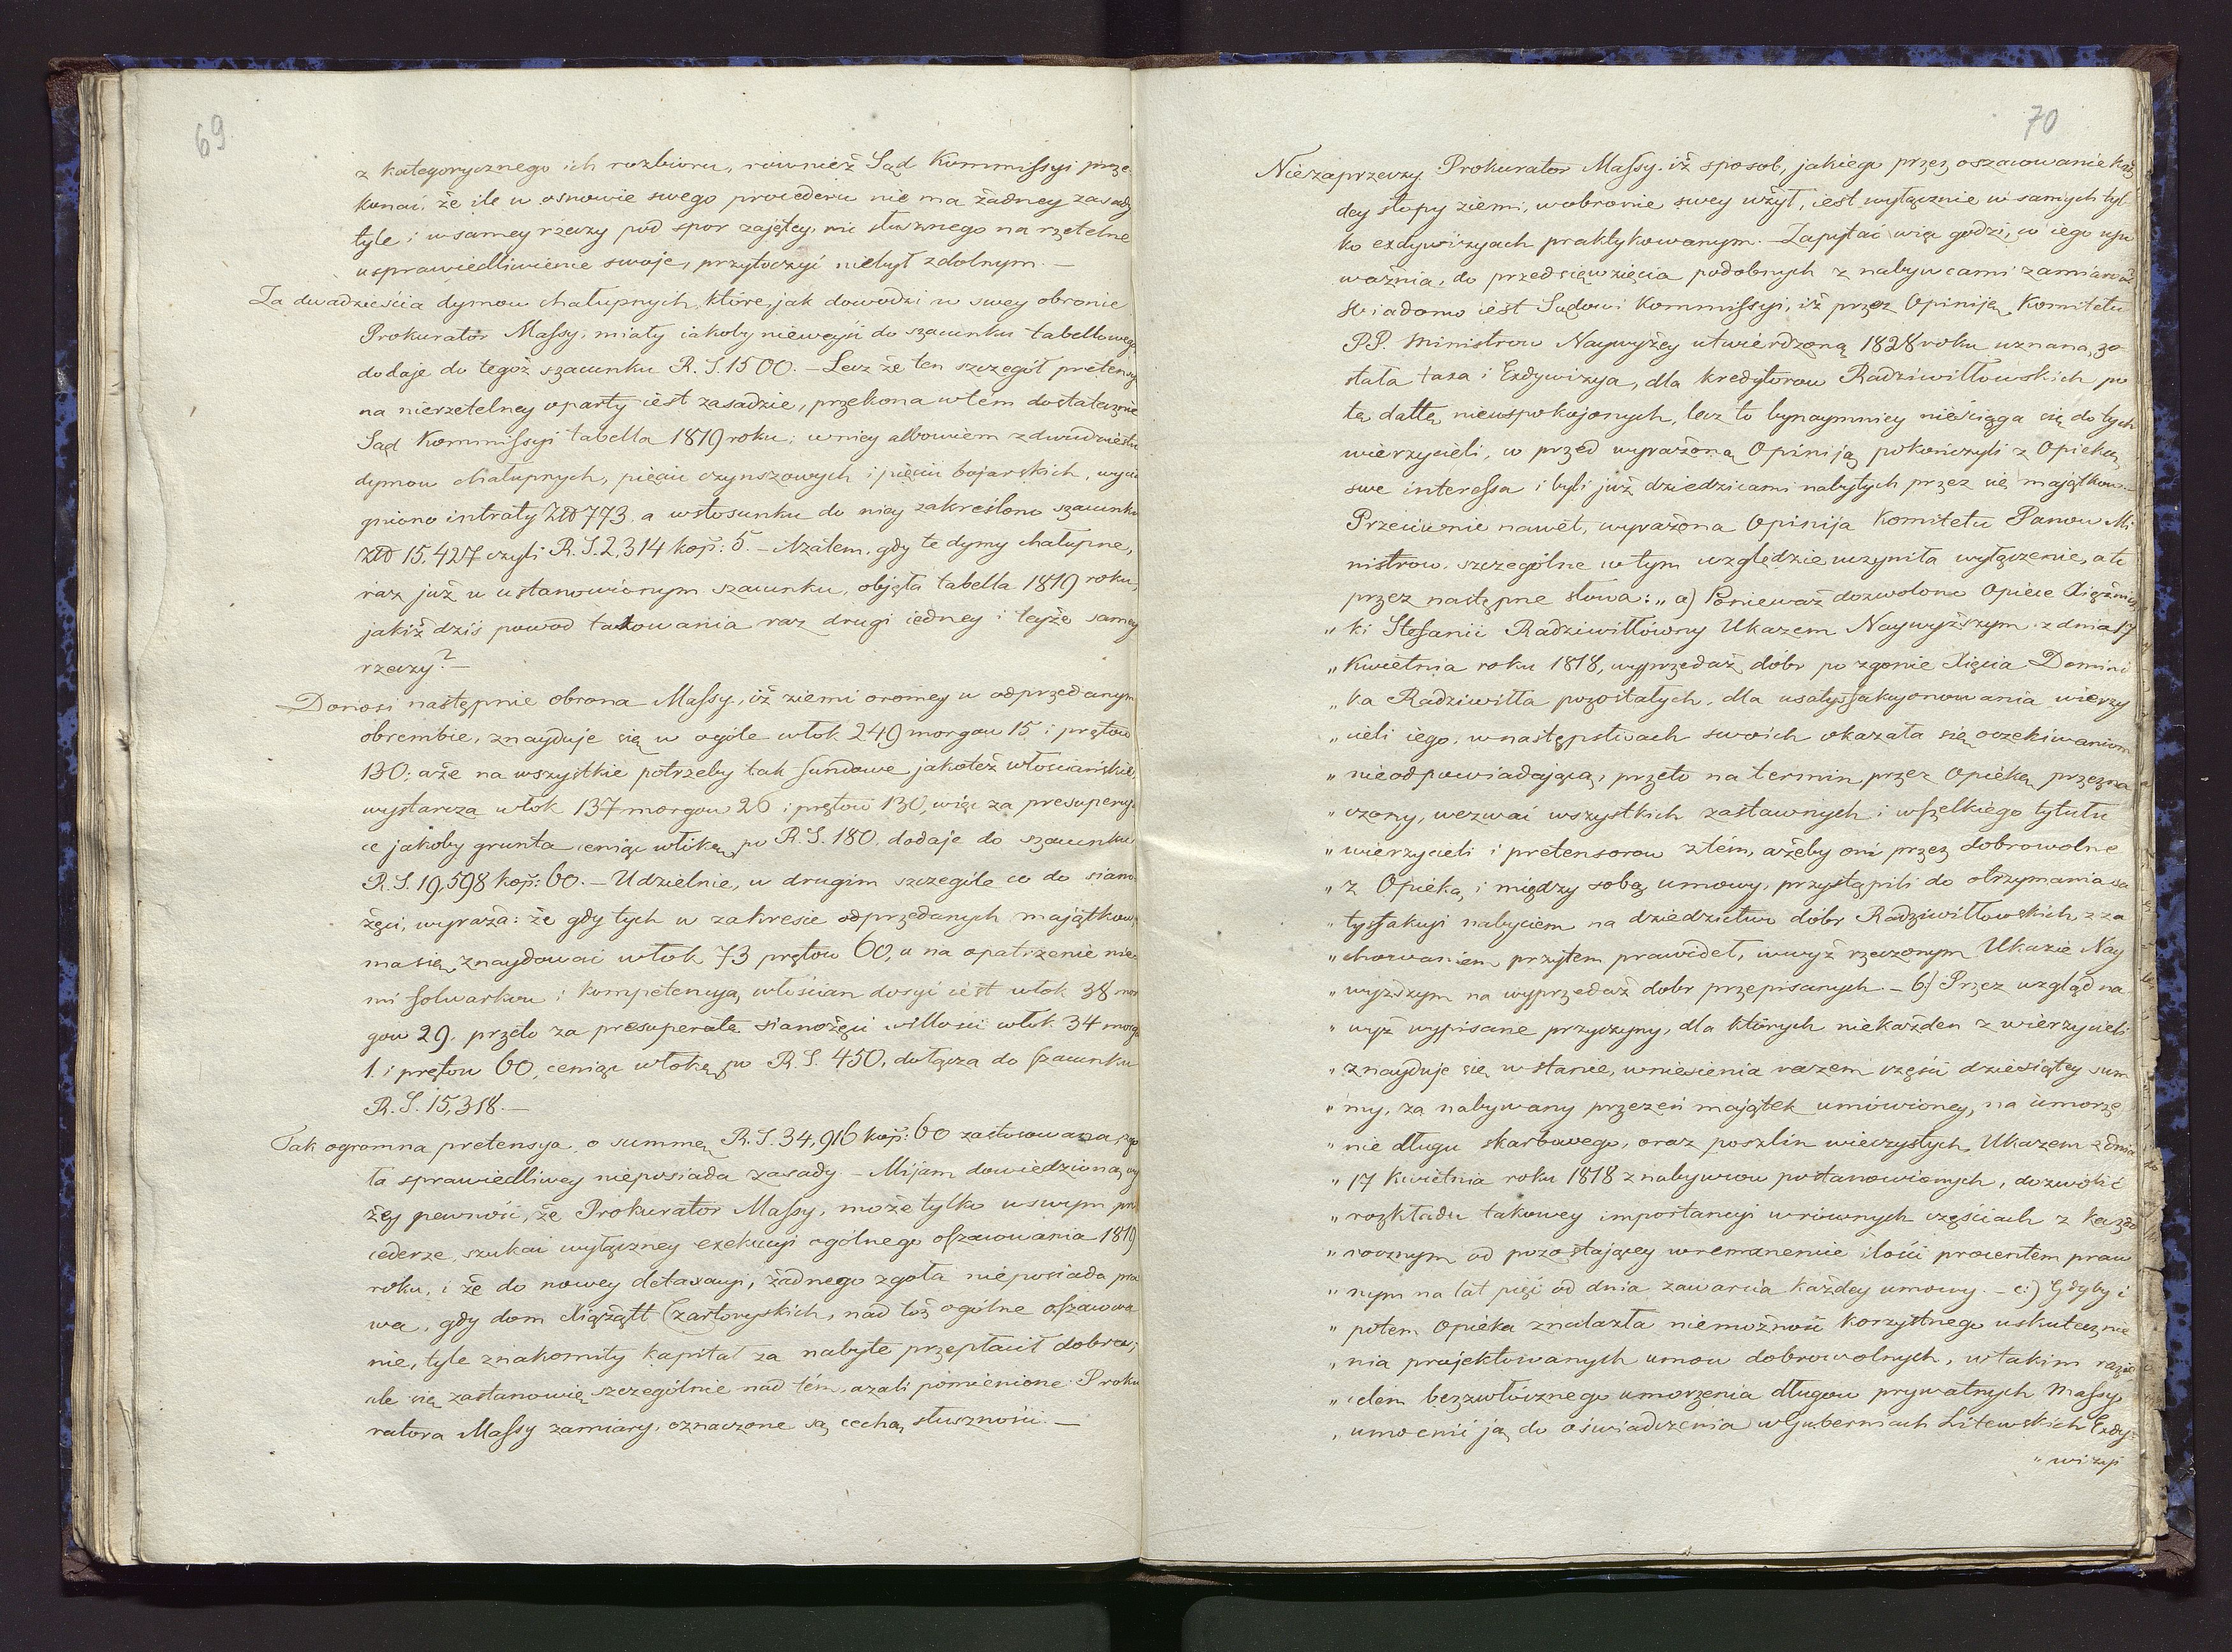 69
z kategorycznego ich rozbioru, również Sąd Kommissyi prze-
konać, że ile w osnowie swego procederu nie ma żadney zasady
tyle i w samey rzeczy pod spor zajętey, nic słusznego na rzetelne
usprawiedliwienie swoje, przytoczyć niebył zdolnym. —
Za dwadzieścia dymow chałupnych, które, jak dowodzi w swey obronie
Prokurator Massy, miały jakoby niewejść do szacunku tabellowego
dodaje do tegoż szacunku R. S. 1500. — Lecz że ten szczegół pretensyi
na nierzetelney oparty iest zasadzie, przekona w tém dostatecznie
Sąd Kommissyi tabella 1819 roku; w niey albowiem z dwudziestu
dymow chałupnych, pięciu czynszowych i pięciu bojarskich, wycią
gniono intraty Złł 773. a w stosunku do niey zakreślono szacunku
Złł 15,427 czyli R. S. 2,314 kop: 5. — A zatem, gdy te dymy chałupne,
raz już w ustanowionym szacunku, objęła tabella 1819 roku,
jakiż dziś powod taxowania raz drugi iedney i teyże samey
rzeczy? —
Donosi następnie obrona Massy, iż ziemi oromey w odprzedanym
obrembie, znayduje się w ogóle włok 249 morgow 15 i prętow
130; a że na wszystkie potrzeby tak fundowe jakoteż włościańskie,
wystarcza włok 137 morgow 26 i prętow 130, więc za presuperuią
ce jakoby grunta ceniąc włókę po R. S. 180. dodaje do szacunku
R. S. 19,598 kop: 60. — Udzielnie, w drugim szczególe co do siano
żęci, wyraża: że gdy tych w zakresie odprzedanych majątkow,
ma się znaydować włok 73 prętow 60, a na opatrzenie nie-
mi folwarkow i kompetencyą włościan dosyć iest włok 38 mor
gow 29. przeto za presuperatę sianożęci w illości włok 34 morg
1. i prętow 60, ceniąc włokę po R. S. 450, dołącza do szacunku
R. S. 15,318. —
Tak ogromna pretensya, o summę R. S. 34,916 kop: 60 zastosowana,
ta sprawiedliwey nieposiada zasady. — Mijam dowiedzioną wy
żey pewność, że Prokurator Massy, może tylko w swym pro
cederze, szukać wyłączney exekucyi ogólnego oszacowania 1819
roku, i że do nowey detaxacyi, żadnego zgoła nieposiada pra
wa, gdy dom Xiążątt Czartoryskich, nad toż ogólne oszacowa
nie, tyle znakomity kapitał za nabyte przepłacił dobra;
ale się zastanowię szczególnie nad tém, azali pomienione Proku
ratora Massy zamiary, oznaczone są cechą słuszności. —
70
Niezaprzeczy Prokurator Massy, iż sposob, jakiego przez oszacowanie każ
dey stopy ziemi, w obronie swey użył, iest wyłącznie w samych tyl
ko exdywizyach praktykowanym. — Zapytać więc godzi, co iego upo
ważnia, do przedsięwzięcia podobnych z nabywcami zamiarow
Wiadomo iest Sądowi Kommissyi, iż przez Opiniją Komitetu
PP. Ministrow Naywyżey utwierdzoną 1828 roku uznaną zo
stała taxa i Exdywizya, dla kredytorow Radziwiłłowskich po
tę dattę nieuspokojonych, lecz to bynaymniey nieściąga się do tych
wierzycieli, co przed wyrażoną Opiniją pokończyli z Opieką
swe interessa i byli już dziedzicami nabytych przez się majątkow.
Przeciwnie nawet, wyrażona Opinija Komitetu Panow Mi
nistrow, szczególne w tym względzie uczyniła wyłączenie, a to
przez następne słowa: „ a) Ponieważ dozwolone Opiece Xiężnicz
„ ki Stefanii Radziwiłłówny Ukazem Naywyższym z dnia 17
„ Kwietnia roku 1818, wyprzedaż dóbr po zgonie Xięcia Domini
„ ka Radziwiłła pozostałych, dla usatysfakcyonowania wierzy
„ cieli iego, w następstwach swoich okazała się oczekiwaniom
„ nieodpowiadającą, przeto na termin przez Opiekę przezna
„ czony, wezwać wszystkich zastawnych i wszelkiego tytułu
„ wierzycieli i pretensorow z tém, ażeby oni przez dobrowolne
„ z Opieką i między sobą umowy, przystąpili do otrzymania sa
„ tysfakcyi nabyciem na dziedzictwo dóbr Radziwiłłowskich z za
„ chowaniem przytem prawideł, w wyż rzeczonym Ukazie Nay
„ wyższym na wyprzedaż dobr przepisanych. — b.) Przez wzgląd na
„ wyż wypisane przyczyny, dla których niekażden z wierzycieli
„ znayduje się w stanie, wniesienia razem części dziesiątey sum
„ my, za nabywany przezeń majątek umówioney, na umorze
„ nie długu skarbowego, oraz poszlin wieczystych, Ukazem z dnia
„ 17 Kwietnia roku 1818 z nabywcow postanowionych, dozwolić
„ rozkładu takowey importancyi w równych częściach z każdo
„ rocznym od pozostającey w remanencie ilości procentem praw
„ nym na lat pięć od dnia zawarcia każdey umowy. — c:) Gdyby i
„ potem Opieka znalazła niemożność korzystnego uskutecznie
„ nia projektowanych umow dobrowolnych, w takim razie
„ celem bezzwłócznego umorzenia długow prywatnych Massy,
„ umocnić ją do oświadczenia w Guberniach Litewskich Exdy-
„ wizyi